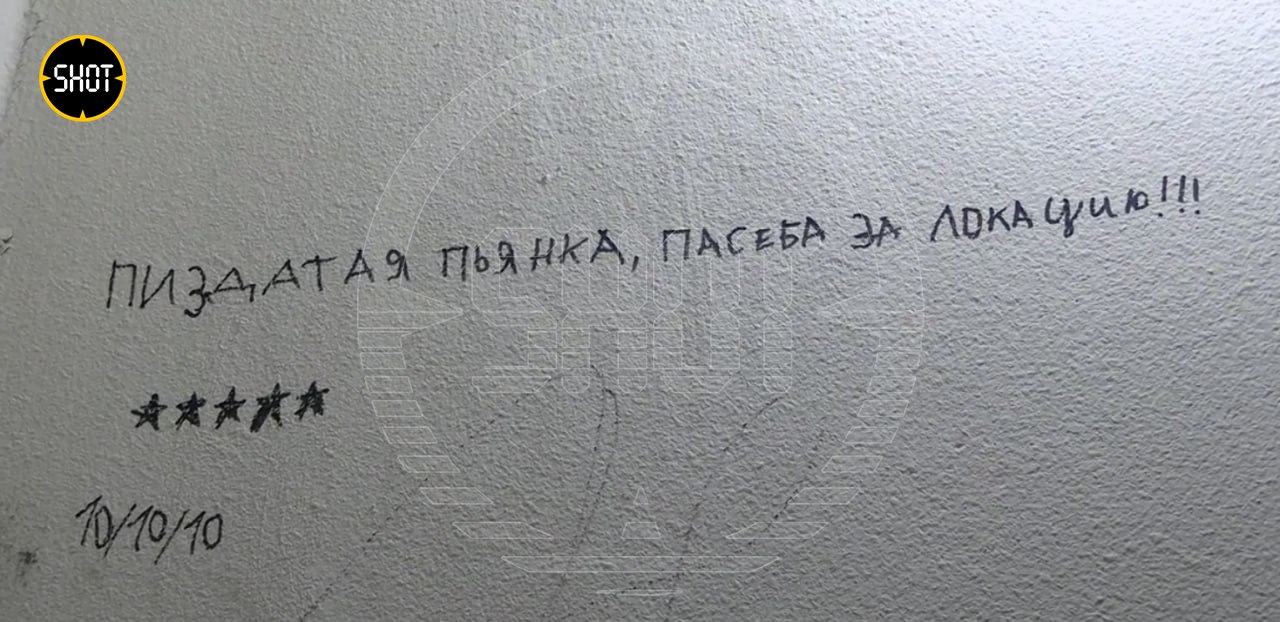 SHOT
ПИЗДАТАЯ ПЬЯНКА, ПАСЕБА ЗА ЛОКАЦИЮ!!!
★★★★★
10/10/10